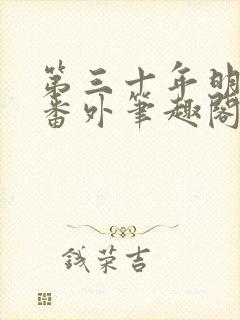 第三十年明
番外笔趣阁
钱荣吉